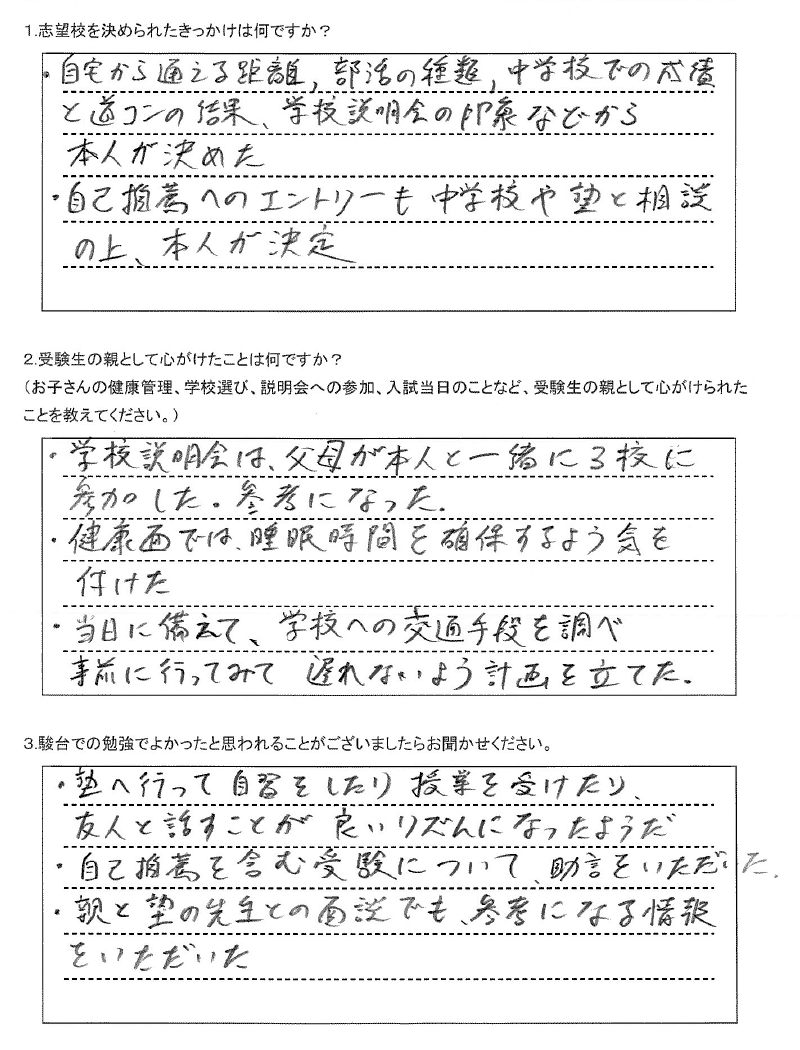 1.志望校を決められたきっかけは何ですか？
・自宅から通える距離,部活の種類,中学校での成績
と道コンの結果、学校説明会の印象などから
本人が決めた
・自己推薦へのエントリーも中学校や塾と相談
の上、本人が決定
2.受験生の親として心がけたことは何ですか？
（お子さんの健康管理、学校選び、説明会への参加、入試当日のことなど、受験生の親として心がけられた
ことを教えてください。）
・学校説明会は、父母が本人と一緒に3校に
参加した。参考になった.
・健康面では、睡眠時間を確保するよう気を
付けた
・当日に備えて、学校への交通手段を調べ
事前に行ってみて 遅れないよう計画を立てた.
3.駿台での勉強でよかったと思われることがございましたらお聞かせください。
・塾へ行って自習をしたり授業を受けたり、
友人と話すことが良いリズムになったようだ
・自己推薦を含む受験について、助言をいただいた.
・親と塾の先生との面談でも、参考になる情報
をいただいた